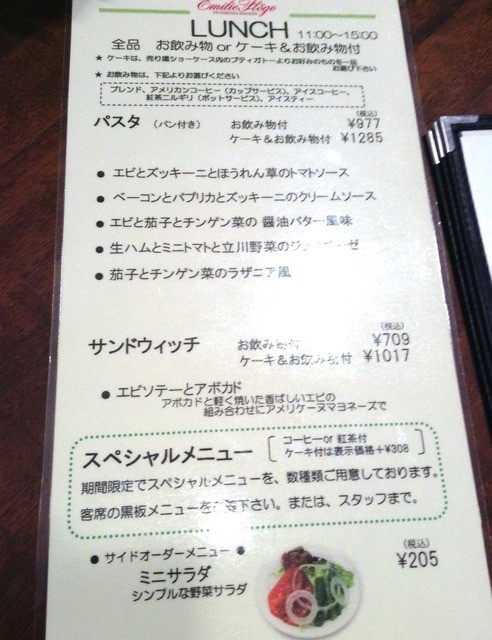 Emilie Flöge
LUNCH 11:00～15:00
全品 お飲み物 or ケーキ＆お飲み物付
★ ケーキは、売り場ショーケース内のプティガトーよりお好みのものを一品
お選び下さい
★ お飲み物は、下記よりお選びください
ブレンド、アメリカンコーヒー（カップサービス）、アイスコーヒー、
紅茶ニルギリ（ポットサービス）、アイスティー
(税込)
パスタ （パン付き） お飲み物付 ¥977
ケーキ＆お飲み物付 ¥1285
● エビとズッキーニとほうれん草のトマトソース
● ベーコンとパプリカとズッキーニのクリームソース
● エビと茄子とチンゲン菜の 醤油バター風味
● 生ハムとミニトマトと立川野菜の
● 茄子とチンゲン菜のラザニア風
(税込)
サンドウィッチ お飲み物付 ¥709
ケーキ＆お飲み物付 ¥1017
● エビソテーとアボカド
アボカドと軽く焼いた香ばしいエビの
組み合わせにアメリケーヌマヨネーズで
スペシャルメニュー
コーヒーor 紅茶付
ケーキ付は表示価格＋¥308
期間限定でスペシャルメニューを、数種類ご用意しております。
客席の黒板メニューをご覧下さい。または、スタッフまで。
● サイドオーダーメニュー ●
(税込)
ミニサラダ ¥205
シンプルな野菜サラダ